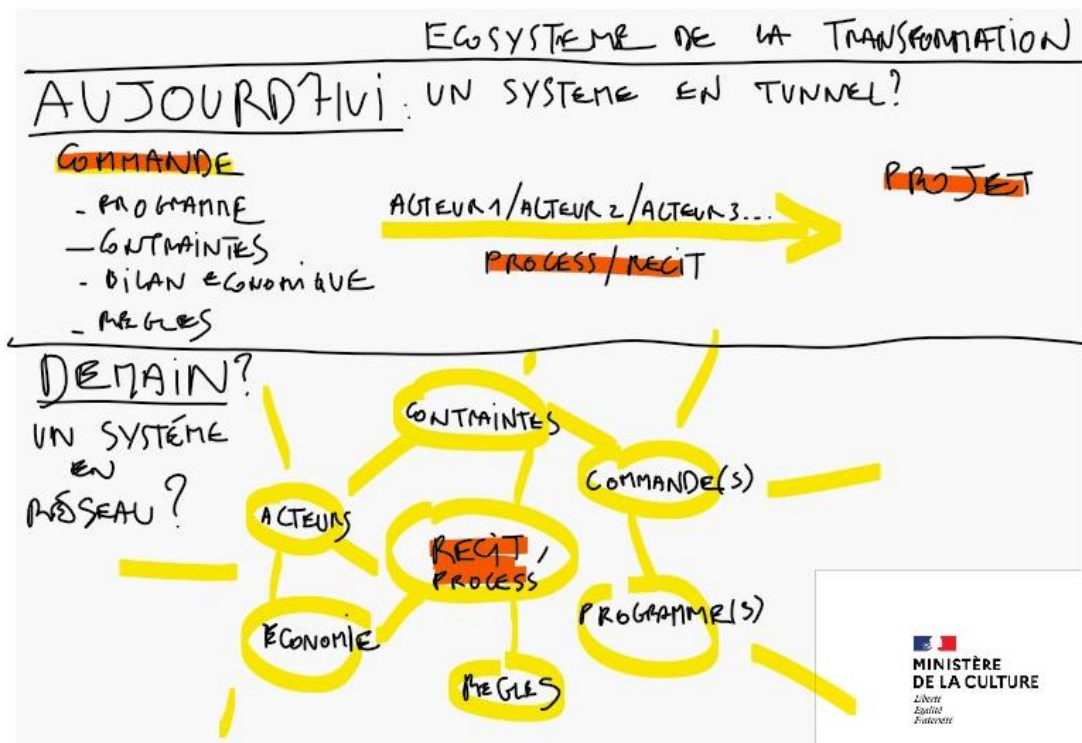 ECOSYSTEME DE LA TRANSFORMATION
AUJOURD'HUI : UN SYSTEME EN TUNNEL?
COMMANDE
- PROGRAMME
- CONTRAINTES
- BILAN ECONOMIQUE
- REGLES
ACTEUR 1/ACTEUR 2/ACTEUR 3...
PROCESS/RECIT
PROJET
DEMAIN?
UN SYSTÉME
EN
RÉSEAU?
CONTRAINTES
COMMANDE(S)
ACTEURS
RECIT,
PROCESS
ECONOMIE
PROGRAMME(S)
REGLES
MINISTÈRE
DE LA CULTURE
Liberté
Égalité
Fraternité